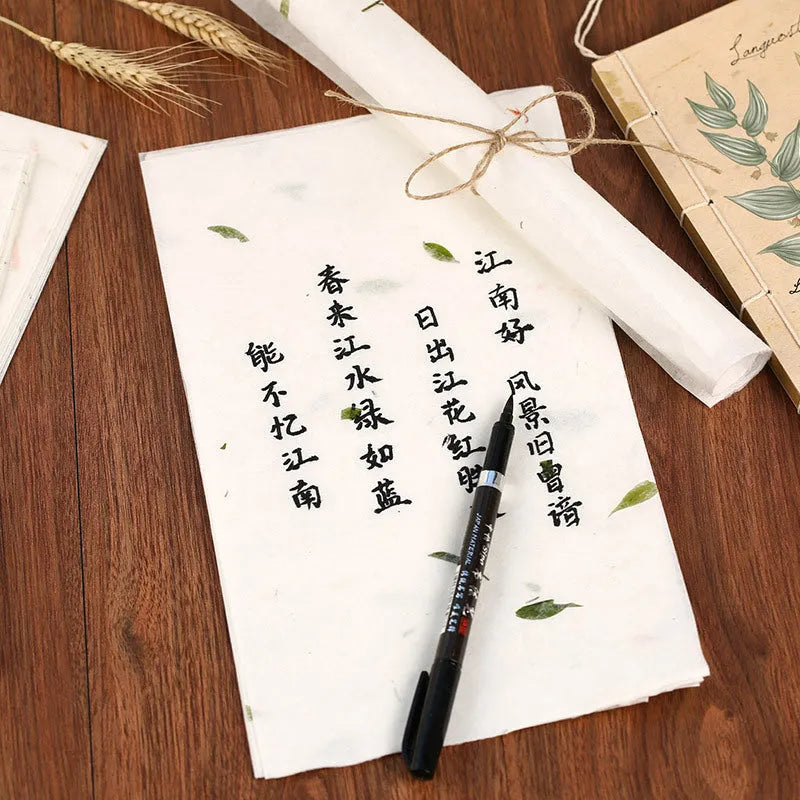 江南好 风景旧曾谙
日出江花红胜
春来江水绿如蓝
能不忆江南
JAPAN MATERIAL